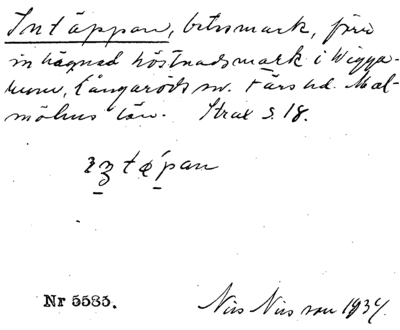 Intäppan, betesmark, före
inhägnad höstnadsmark i Wigga-
rum, Långaröds sn. Färs hd. Mal-
möhus län. Strax S. 18.
Nr 5585.
Nils Nilsson 1934.